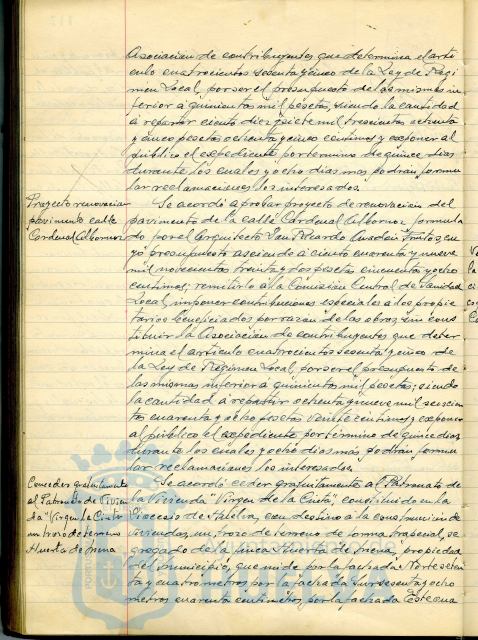 Asociación de contribuyentes que determina el artí
culo cuatrocientos sesenta y cinco de la Ley de Régi
men Local, por ser el presupuesto de las mismas in
ferior a quinientas mil pesetas, siendo la cantidad
a repartir ciento diez y siete mil trescientas ochenta
y cinco pesetas ochenta y cinco centimos y exponer al
público el expediente por termino de quince dias
durante los cuales y ocho dias mas podran formu
lar reclamaciones los interesados.
Proyecto renovacion
pavimento calle
Cardenal Albornoz
Se acordó aprobar proyecto de renovacion del
pavimento de la calle Cardenal Albornoz formula
do por el Arquitecto Don Ricardo Anadón Frutos, cu
yo presupuesto asciende a ciento cuarenta y nueve
mil novecientas treinta y dos pesetas cincuenta y ocho
centimos; remitirlo a la Comisión Central de Sanidad
Local, imponer contribuciones especiales a los propie
tarios beneficiados por razon de las obras sin cons
tituir la Asociación de contribuyentes que deter
mina el articulo cuatrocientos sesenta y cinco de
la Ley de Régimen Local, por ser el presupuesto de
las mismas inferior a quinientas mil pesetas; siendo
la cantidad a repartir ochenta y nueve mil seiscien
tas cuarenta y ocho pesetas veinte centimos y exponer
al público el expediente por término de quince dias
durante los cuales y ocho dias más podrán formu
lar reclamaciones los interesados.
Conceder gratuitamente
al Patronato de Vivien
da "Virgen la Cinta"
un trozo de terreno
Huerta de Mena
Se acordó ceder gratuitamente al Patronato de
la Vivienda "Virgen de la Cinta", constituido en la
Diocesis de Huelva, con destino a la construcción de
viviendas, un trozo de terreno de forma trapecial, se
gregado de la finca Huerta de Mena, propiedad
del municipio, que mide por la fachada Norte seten
ta y cuatro metros por la fachada Sur sesenta y ocho
metros cuarenta centimetros, por la fachada Este cua